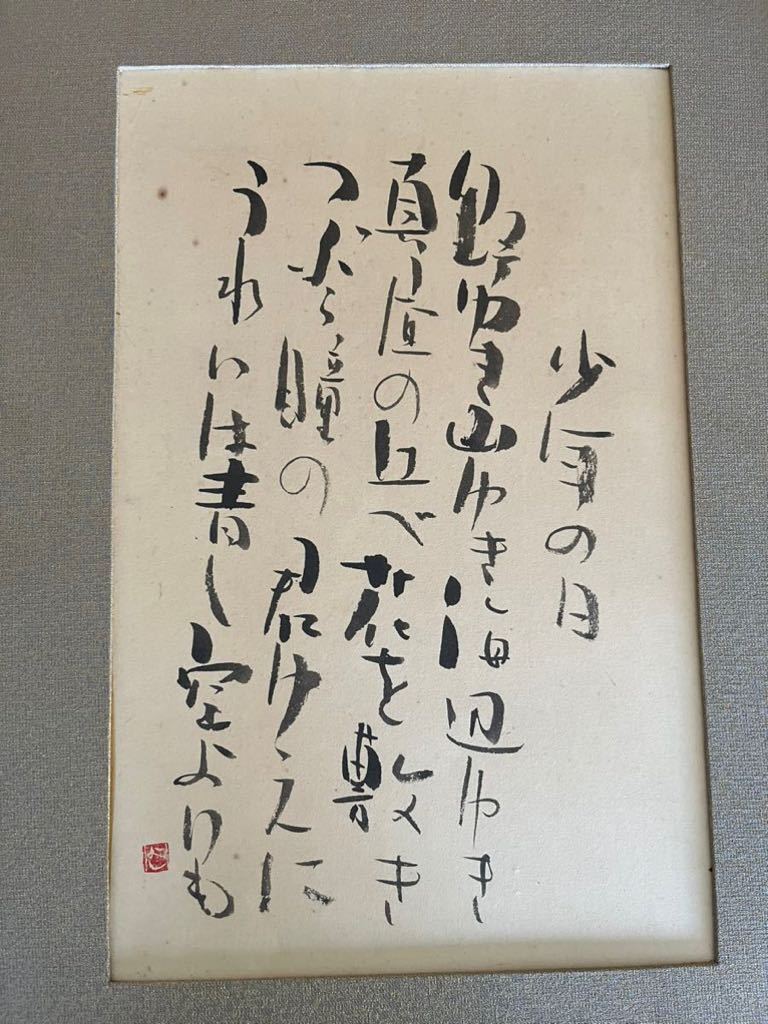 少年の日
野ゆき山ゆき海辺ゆき
真昼の丘べ花を敷き
つぶら瞳の君ゆえに
うれいは青し空よりも